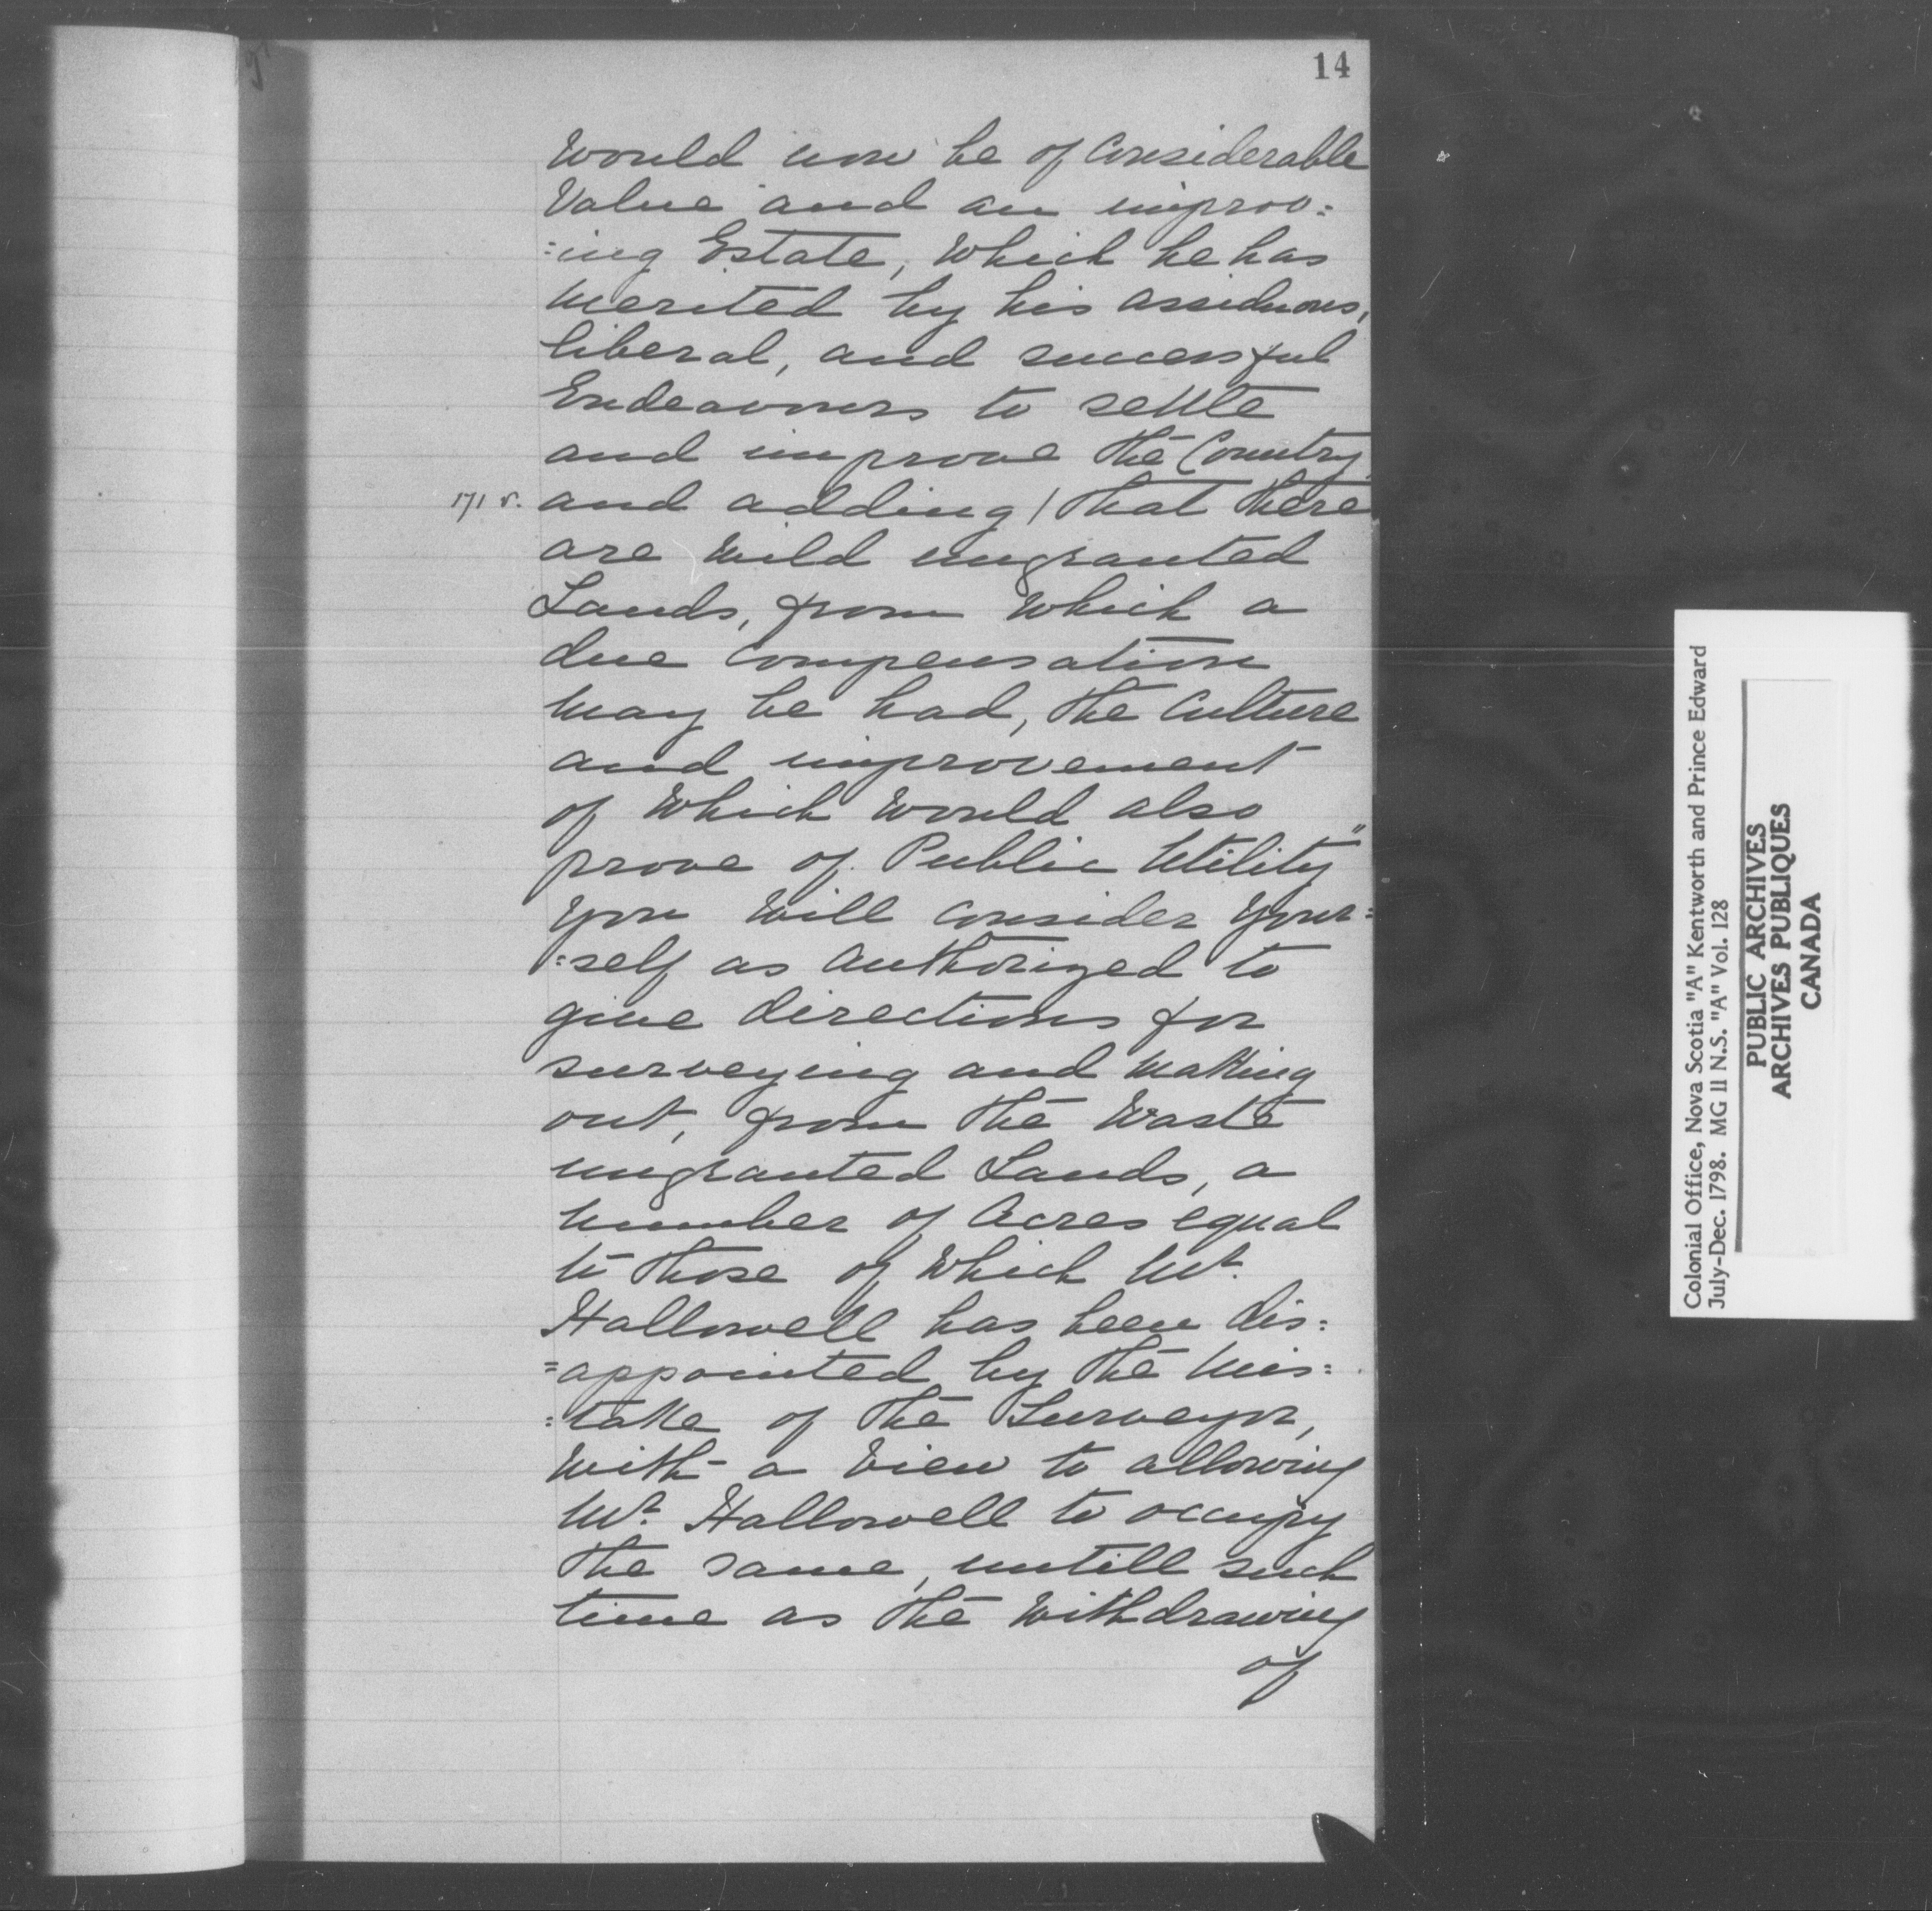 14
Would now be of Considerable
Value and an improv=
=ing Estate, Which he has
Merited by his assiduous,
liberal, and successful
Endeavours to settle
and improve the Country
171 v. and adding / that there
are Wild ungranted
Lands, from Which a
due Compensation
May be had, the Culture
and improvement
of Which Would also
prove of Public Utility"
You Will Consider Your=
=self as Authorized to
give directions for
surveying and Making
out, from the Waste
ungranted Lands, a
Number of Acres equal
to those of Which Mr.
Hallowell has been dis=
=appointed by the Mis=
=take of the Surveyor,
With a View to allowing
Mr. Hallowell to occupy
the same, untill such
time as the Withdrawing
of
Colonial Office, Nova Scotia "A" Kentworth and Prince Edward
July-Dec. 1798. MG 11 N.S. "A" Vol. 128
PUBLIC ARCHIVES
ARCHIVES PUBLIQUES
CANADA